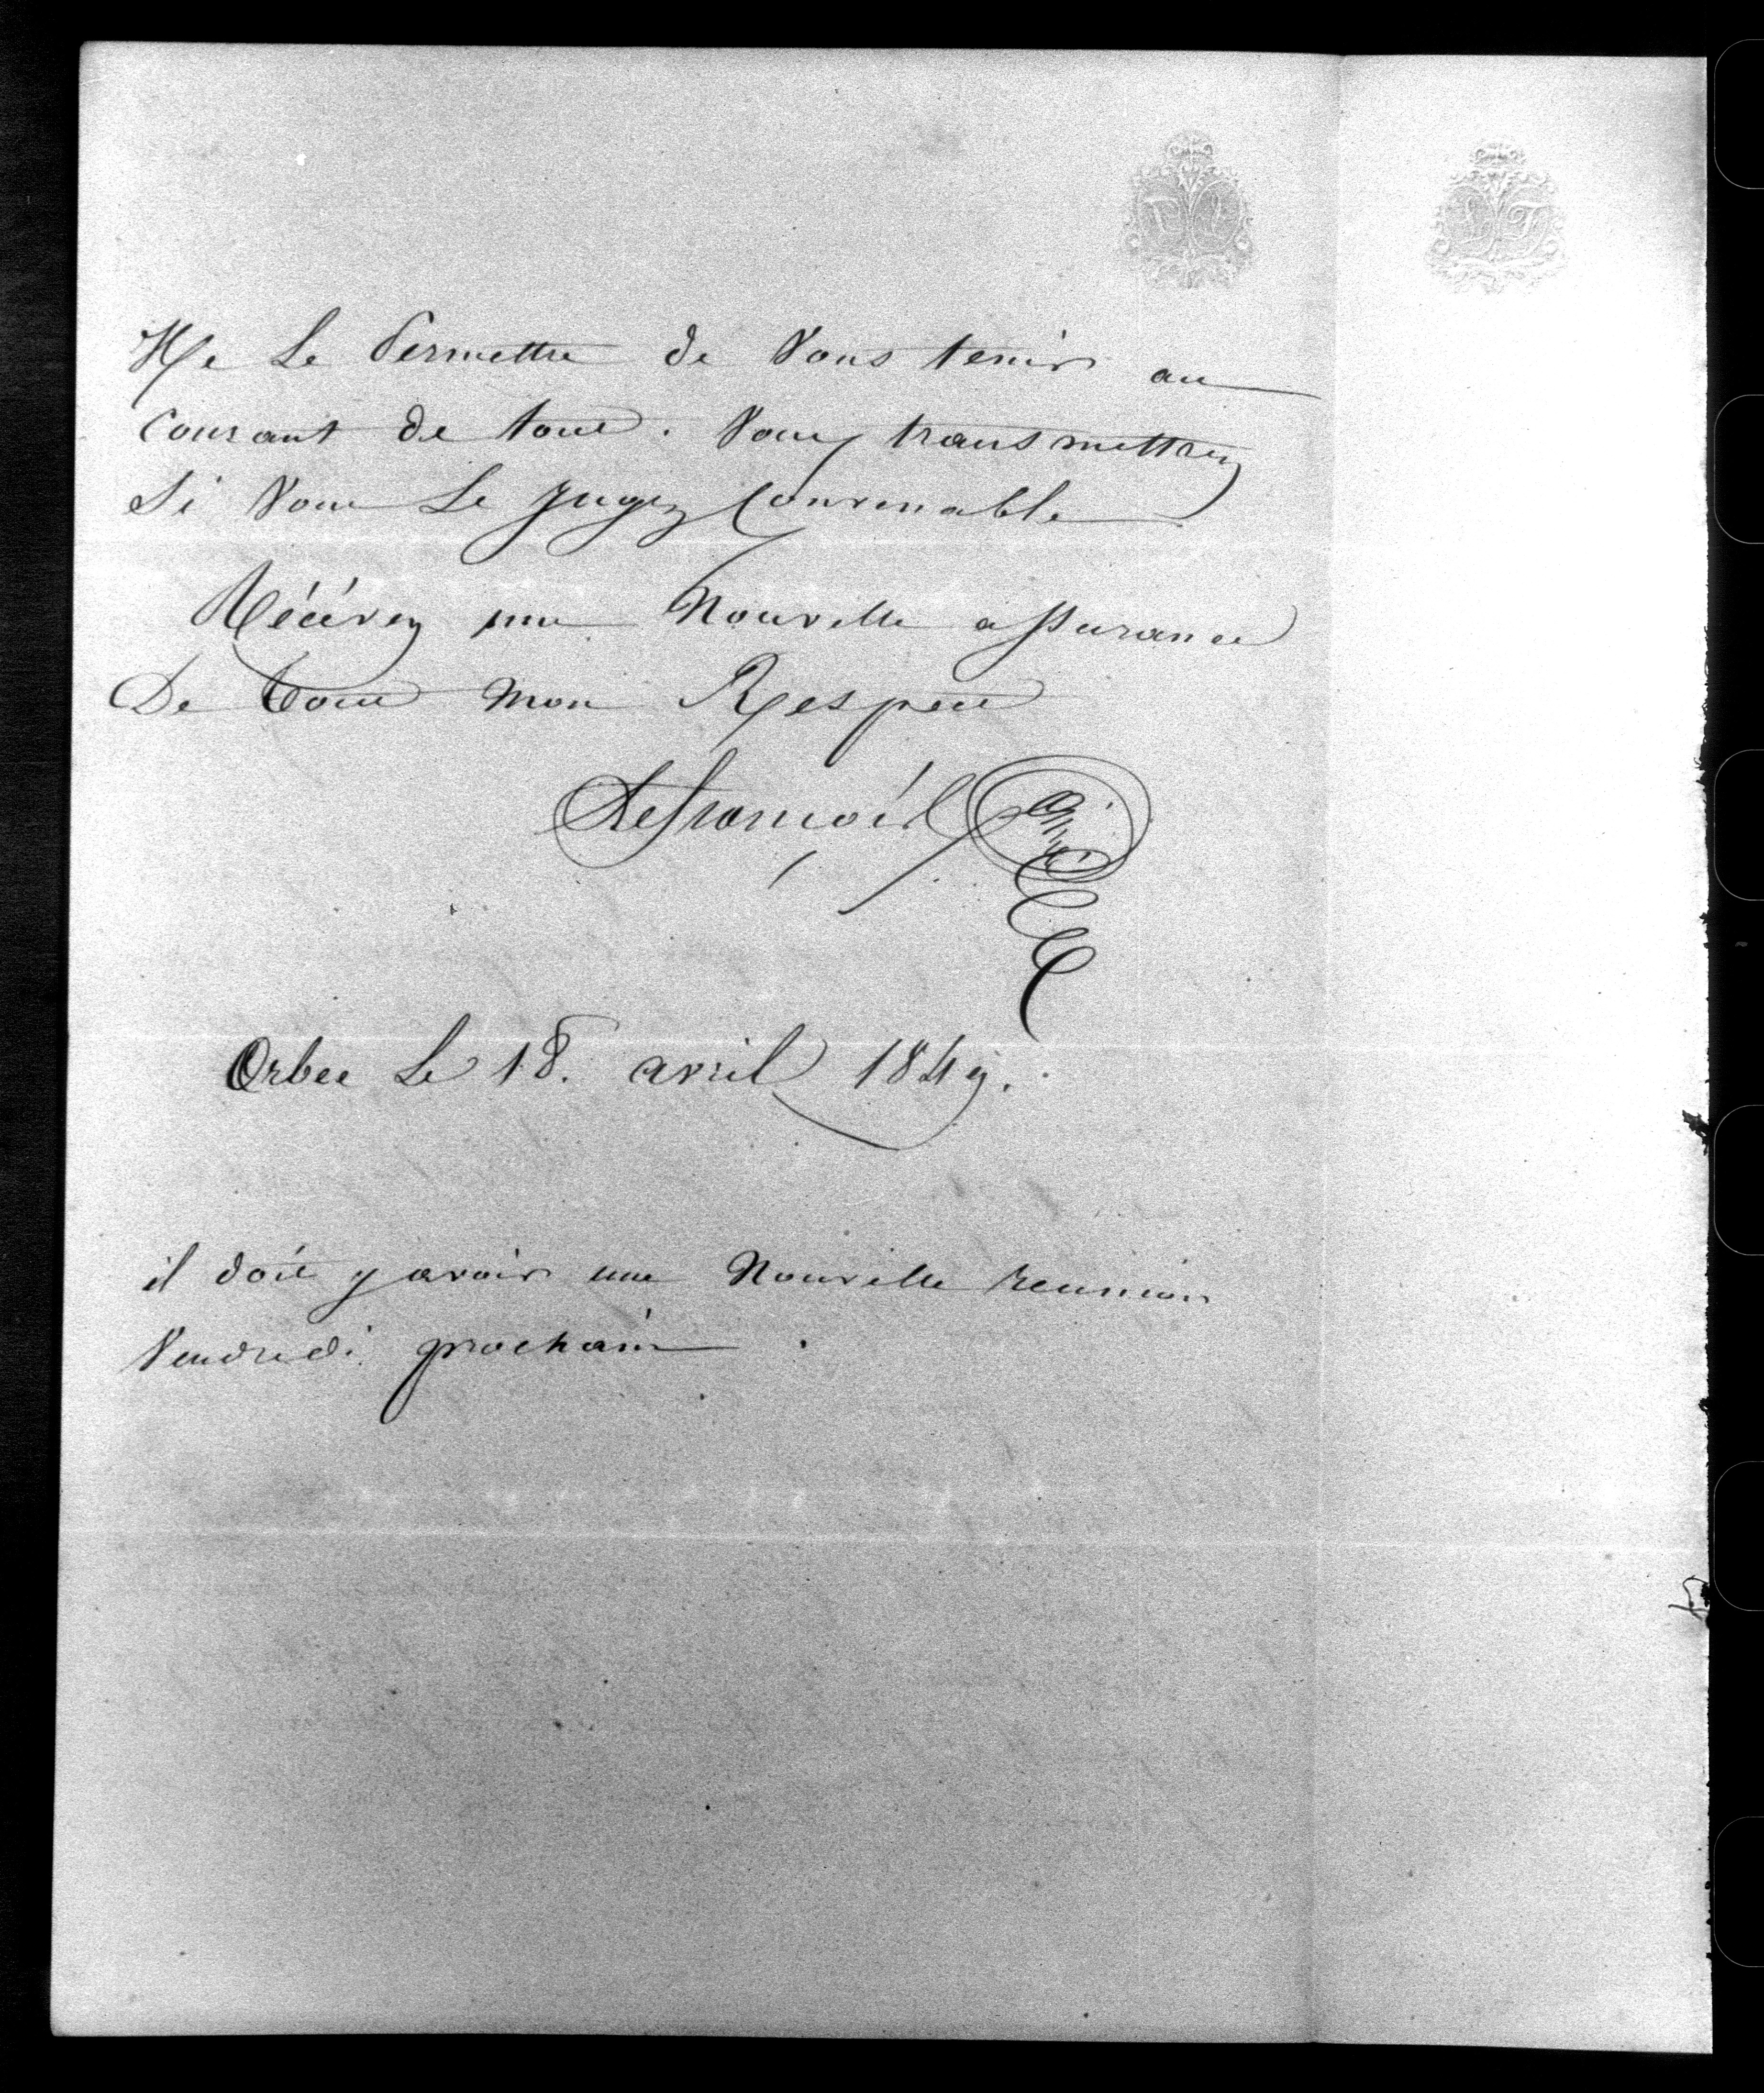 Me Le Permettre de Vous tenir au
Courant de tout. Vous transmettrez
Si Vous Le Jugez Convenable
Récévez une Nouvelle assurance
De tout Mon Respect
Orbec Le 18. avril 1849.
il doit y avoir une Nouvelle reunion
Vendredi prochain.